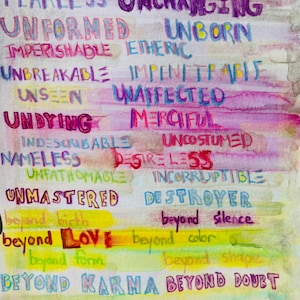 FEARLESS UNCHANGING
UNFORMED UNBORN
IMPERISHABLE ETHERIC
UNBREAKABLE IMPENETRABLE
UNSEEN UNAFFECTED
UNDYING MERCIFUL
INDESCRIBABLE UNCOSTUMED
NAMELESS DESIRELESS
UNFATHOMABLE INCORRUPTIBLE
UNMASTERED DESTROYER
beyond birth beyond silence
beyond LOVE beyond color
beyond form beyond shape
BEYOND KARMA BEYOND DOUBT